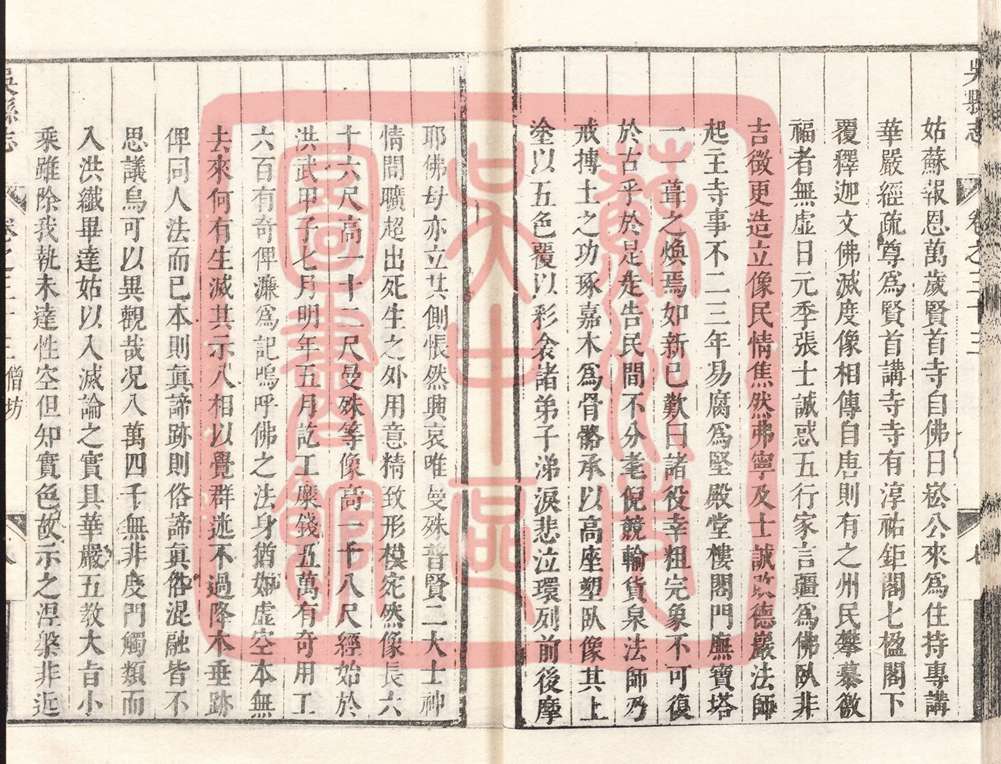 吳縣志
卷之二十三
七
姑蘇報恩萬歲賢首寺自佛日崧公來爲住持專講
華嚴經疏尊爲賢首講寺寺有淳祐鉅閣七楹閣下
覆釋迦文佛滅度像相傳自唐則有之州民攀慕徼
福者無虛日元季張士誠惑五行家言彊爲佛臥非
吉徵更造立像民情焦然弗寧及士誠敗德巖法師
起王寺事不二三年易腐爲堅殿堂樓閣門廡寶塔
一一葺之煥焉如新已歎曰諸役幸粗完象不可復
於古乎於是走告民間不分耄倪競輸貨泉法師乃
戒摶土之功琢嘉木爲骨骼承以高座塑臥像其上
塗以五色覆以彩衾諸弟子涕淚悲泣環列前後摩
耶佛母亦立其側悵然興哀唯曼殊普賢二大士神
情閒曠超出死生之外用意精致形模宛然像長六
十六尺高一十二尺曼殊等像高一十八尺經始於
洪武甲子七月明年五月訖工糜錢五萬有奇用工
六百有奇俾濂爲記嗚呼佛之法身猶如虛空本無
去來何有生滅其示八相以覺群迷不過降本垂跡
俾同人法而已本則眞諦跡則俗諦眞俗混融皆不
思議烏可以異觀哉况八萬四千無非度門觸類而
入洪纖畢達姑以入滅論之實具華嚴五教大旨小
乘雖除我執未達性空但知實色故示之涅槃非近
吳縣志
卷之二十三 僧坊
八
蘇州市
吳中區
圖書館